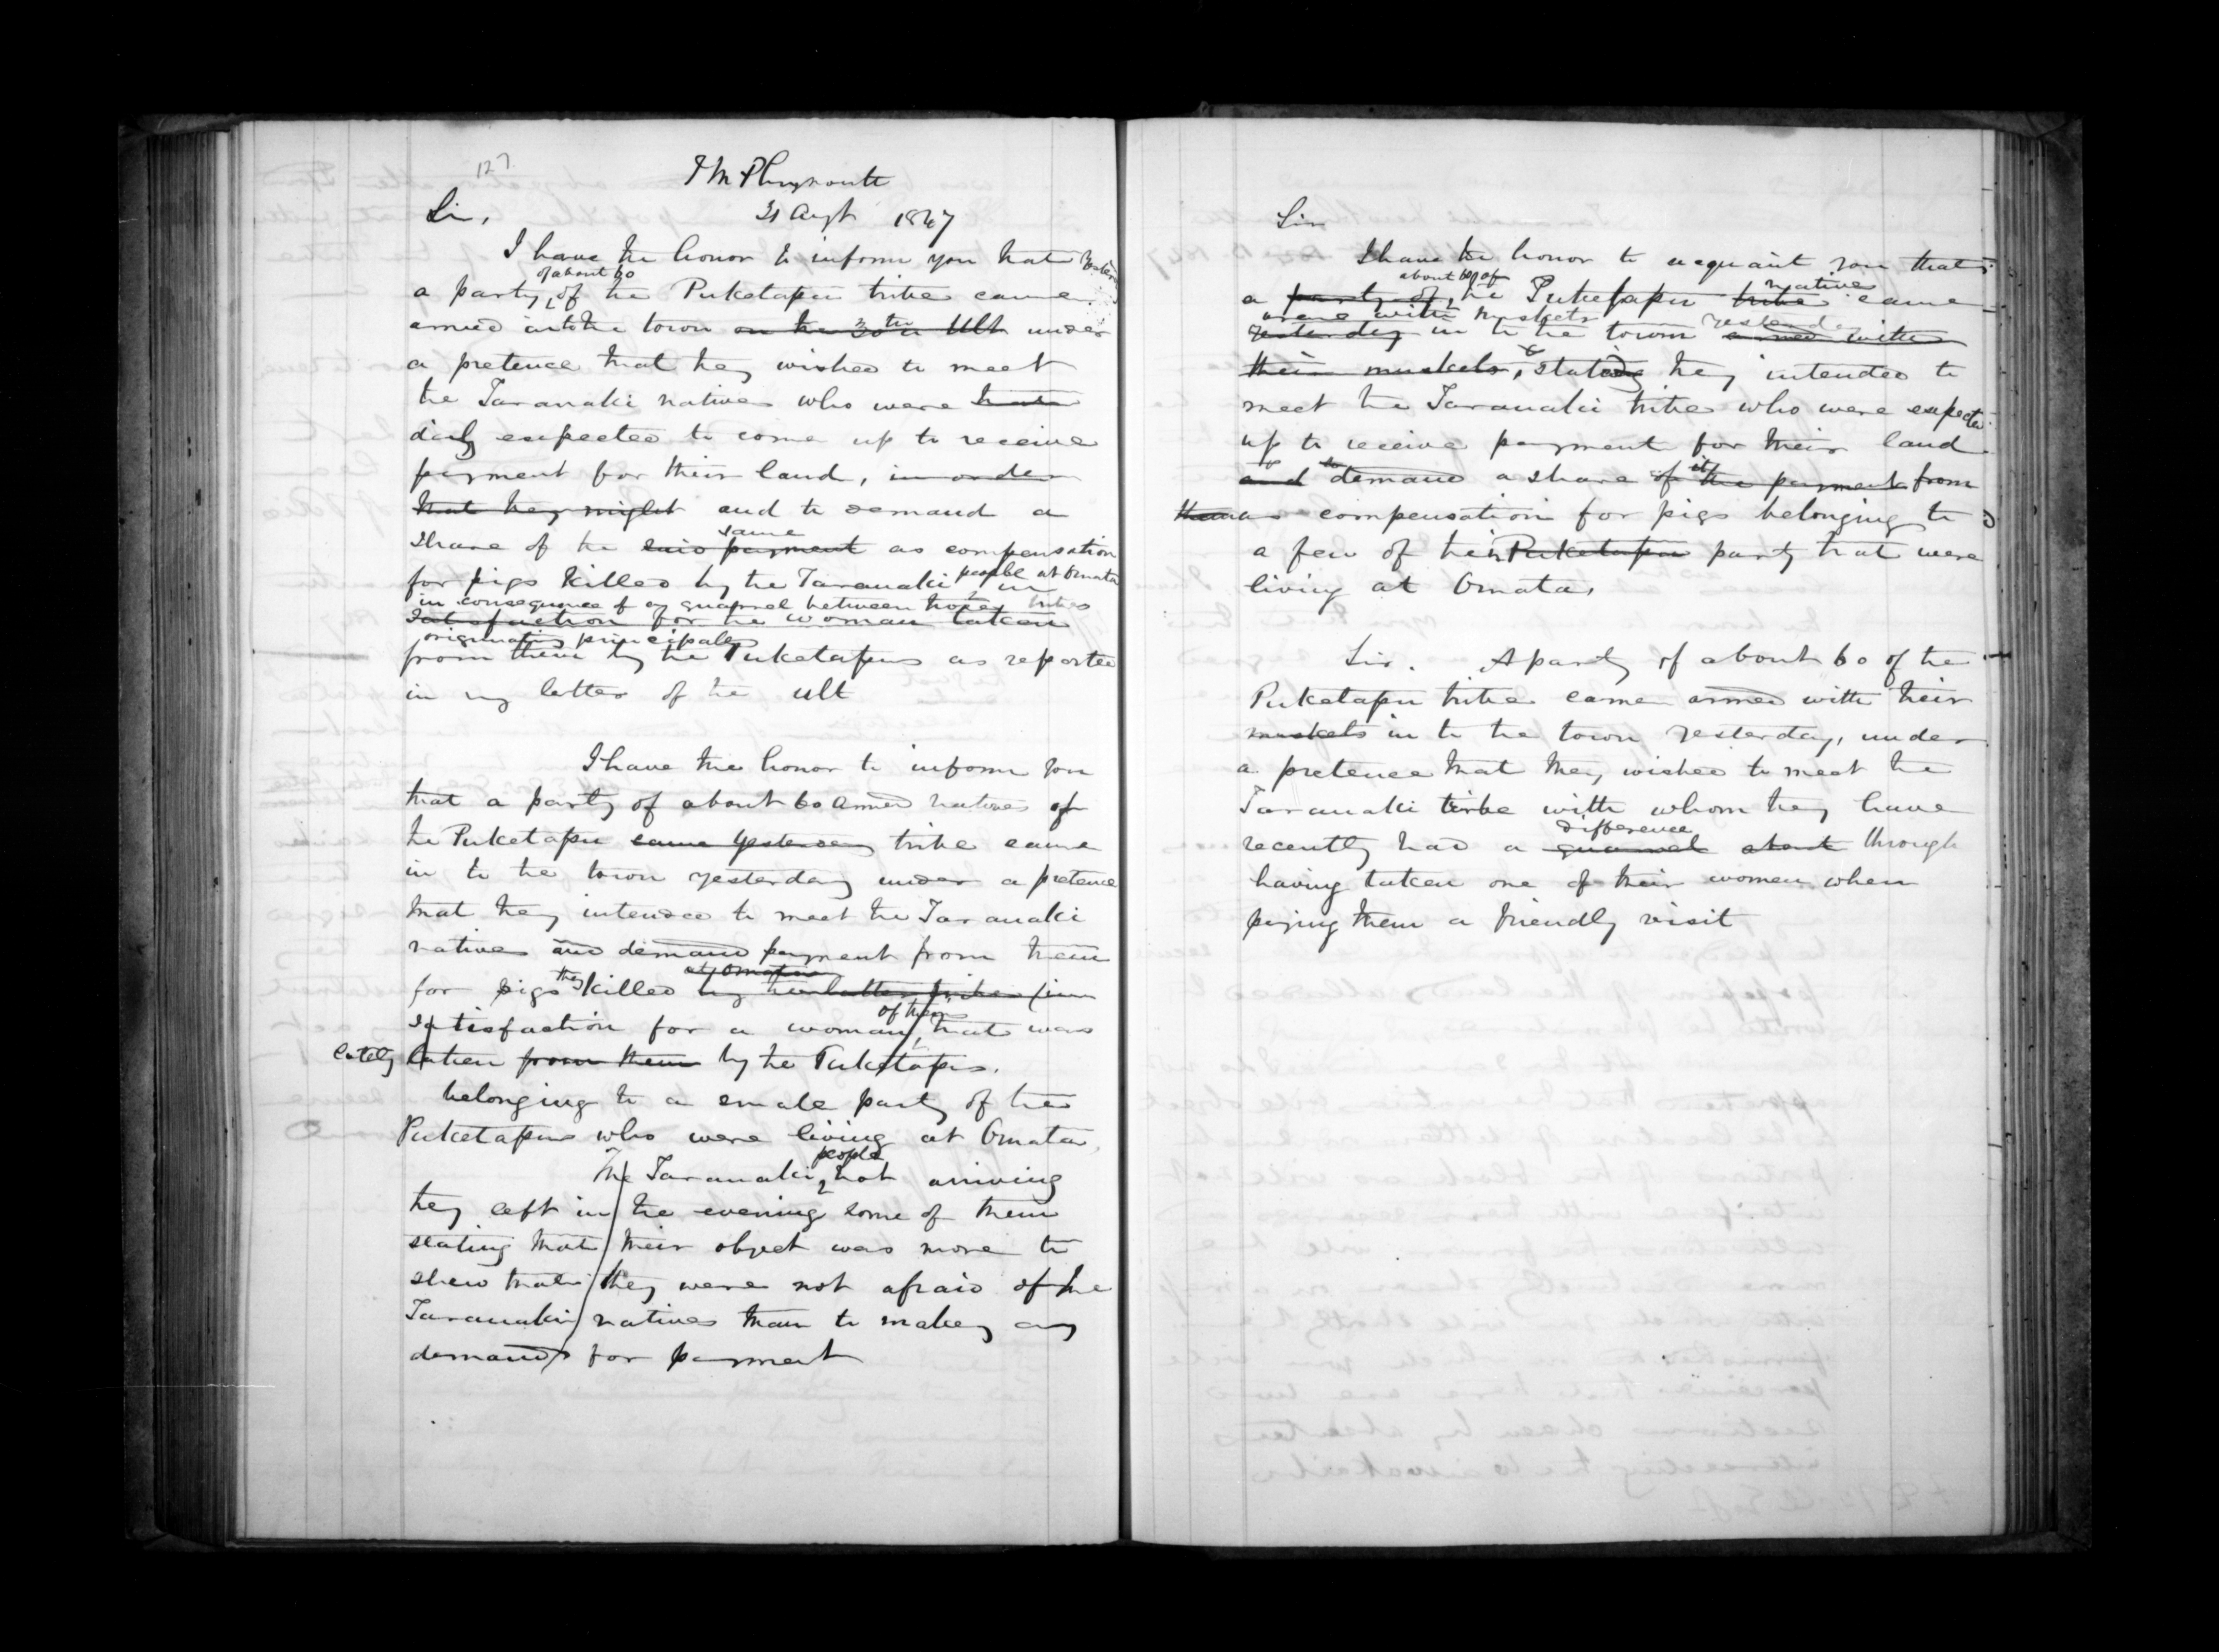 127
Plymouth
Sir, 31 Augt 1847
I have the honor to inform you that
of about 60
a party of the Puketapu tribe came
armed into the town on the 30th Ult under
a pretence that they wished to meet
the Taranaki natives who were
daily expected to come up to receive
payment for their land, in order
that they might and to demand a
same
share of the said payment as compensation
people at Omata
for pigs killed by the Taranaki in
in consequence of a quarrel between those tribes
satisfaction for the woman taken
originating principally
from them by the Puketapus as reported
in my letter of the ult
I have the honor to inform you
that a party of about 60 armed natives of
the Puketapu came yesterday tribe came
in to the town yesterday under a pretence
that they intended to meet the Taranaki
natives and demand payment from them
at Omata
for pigs they killed by the latter tribe in
of theirs
satisfaction for a woman that was
lately taken from them by the Puketapus.
belonging to a small party of the
Puketapus who were living at Omata
people
The Taranaki not arriving
they left in the evening some of them
stating that their object was more to
shew that they were not afraid of the
Taranaki natives than to making any
demand for payment
Sir
I have the honor to acquaint you that
about 60 of natives
a party of the Puketapu tribe came
with muskets yesterday
yesterday in to the town armed with
their muskets, & stating they intended to
meet the Taranaki tribe who were expected
up to receive payment for their land
to it
and demand a share of the payment from
them as compensation for pigs belonging to
a few of their Puketapu party that were
living at Omata.
Sir. A party of about 60 of the
Puketapu tribe came armed with their
muskets in to the town yesterday, under
a pretence that they wished to meet the
Taranaki tribe with whom they have
difference
recently had a quarrel about through
having taken one of their women when
paying them a friendly visit